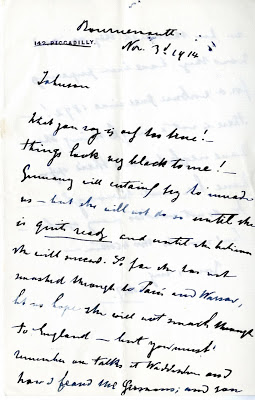 Bournemouth.
142 PICCADILLY.
Nov. 3d 1914
Johnson
What you say is only too true! –
things look very black to me! –
Germany will certainly try to invade
us – but she will not do so until she
is quite ready and until she believes
she will succeed. So far she has not
smashed through to Paris and Warsaw,
let us hope she will not smash through
to England – but you must
remember our talks at Waddesdon and
how I feared the Germans; and you